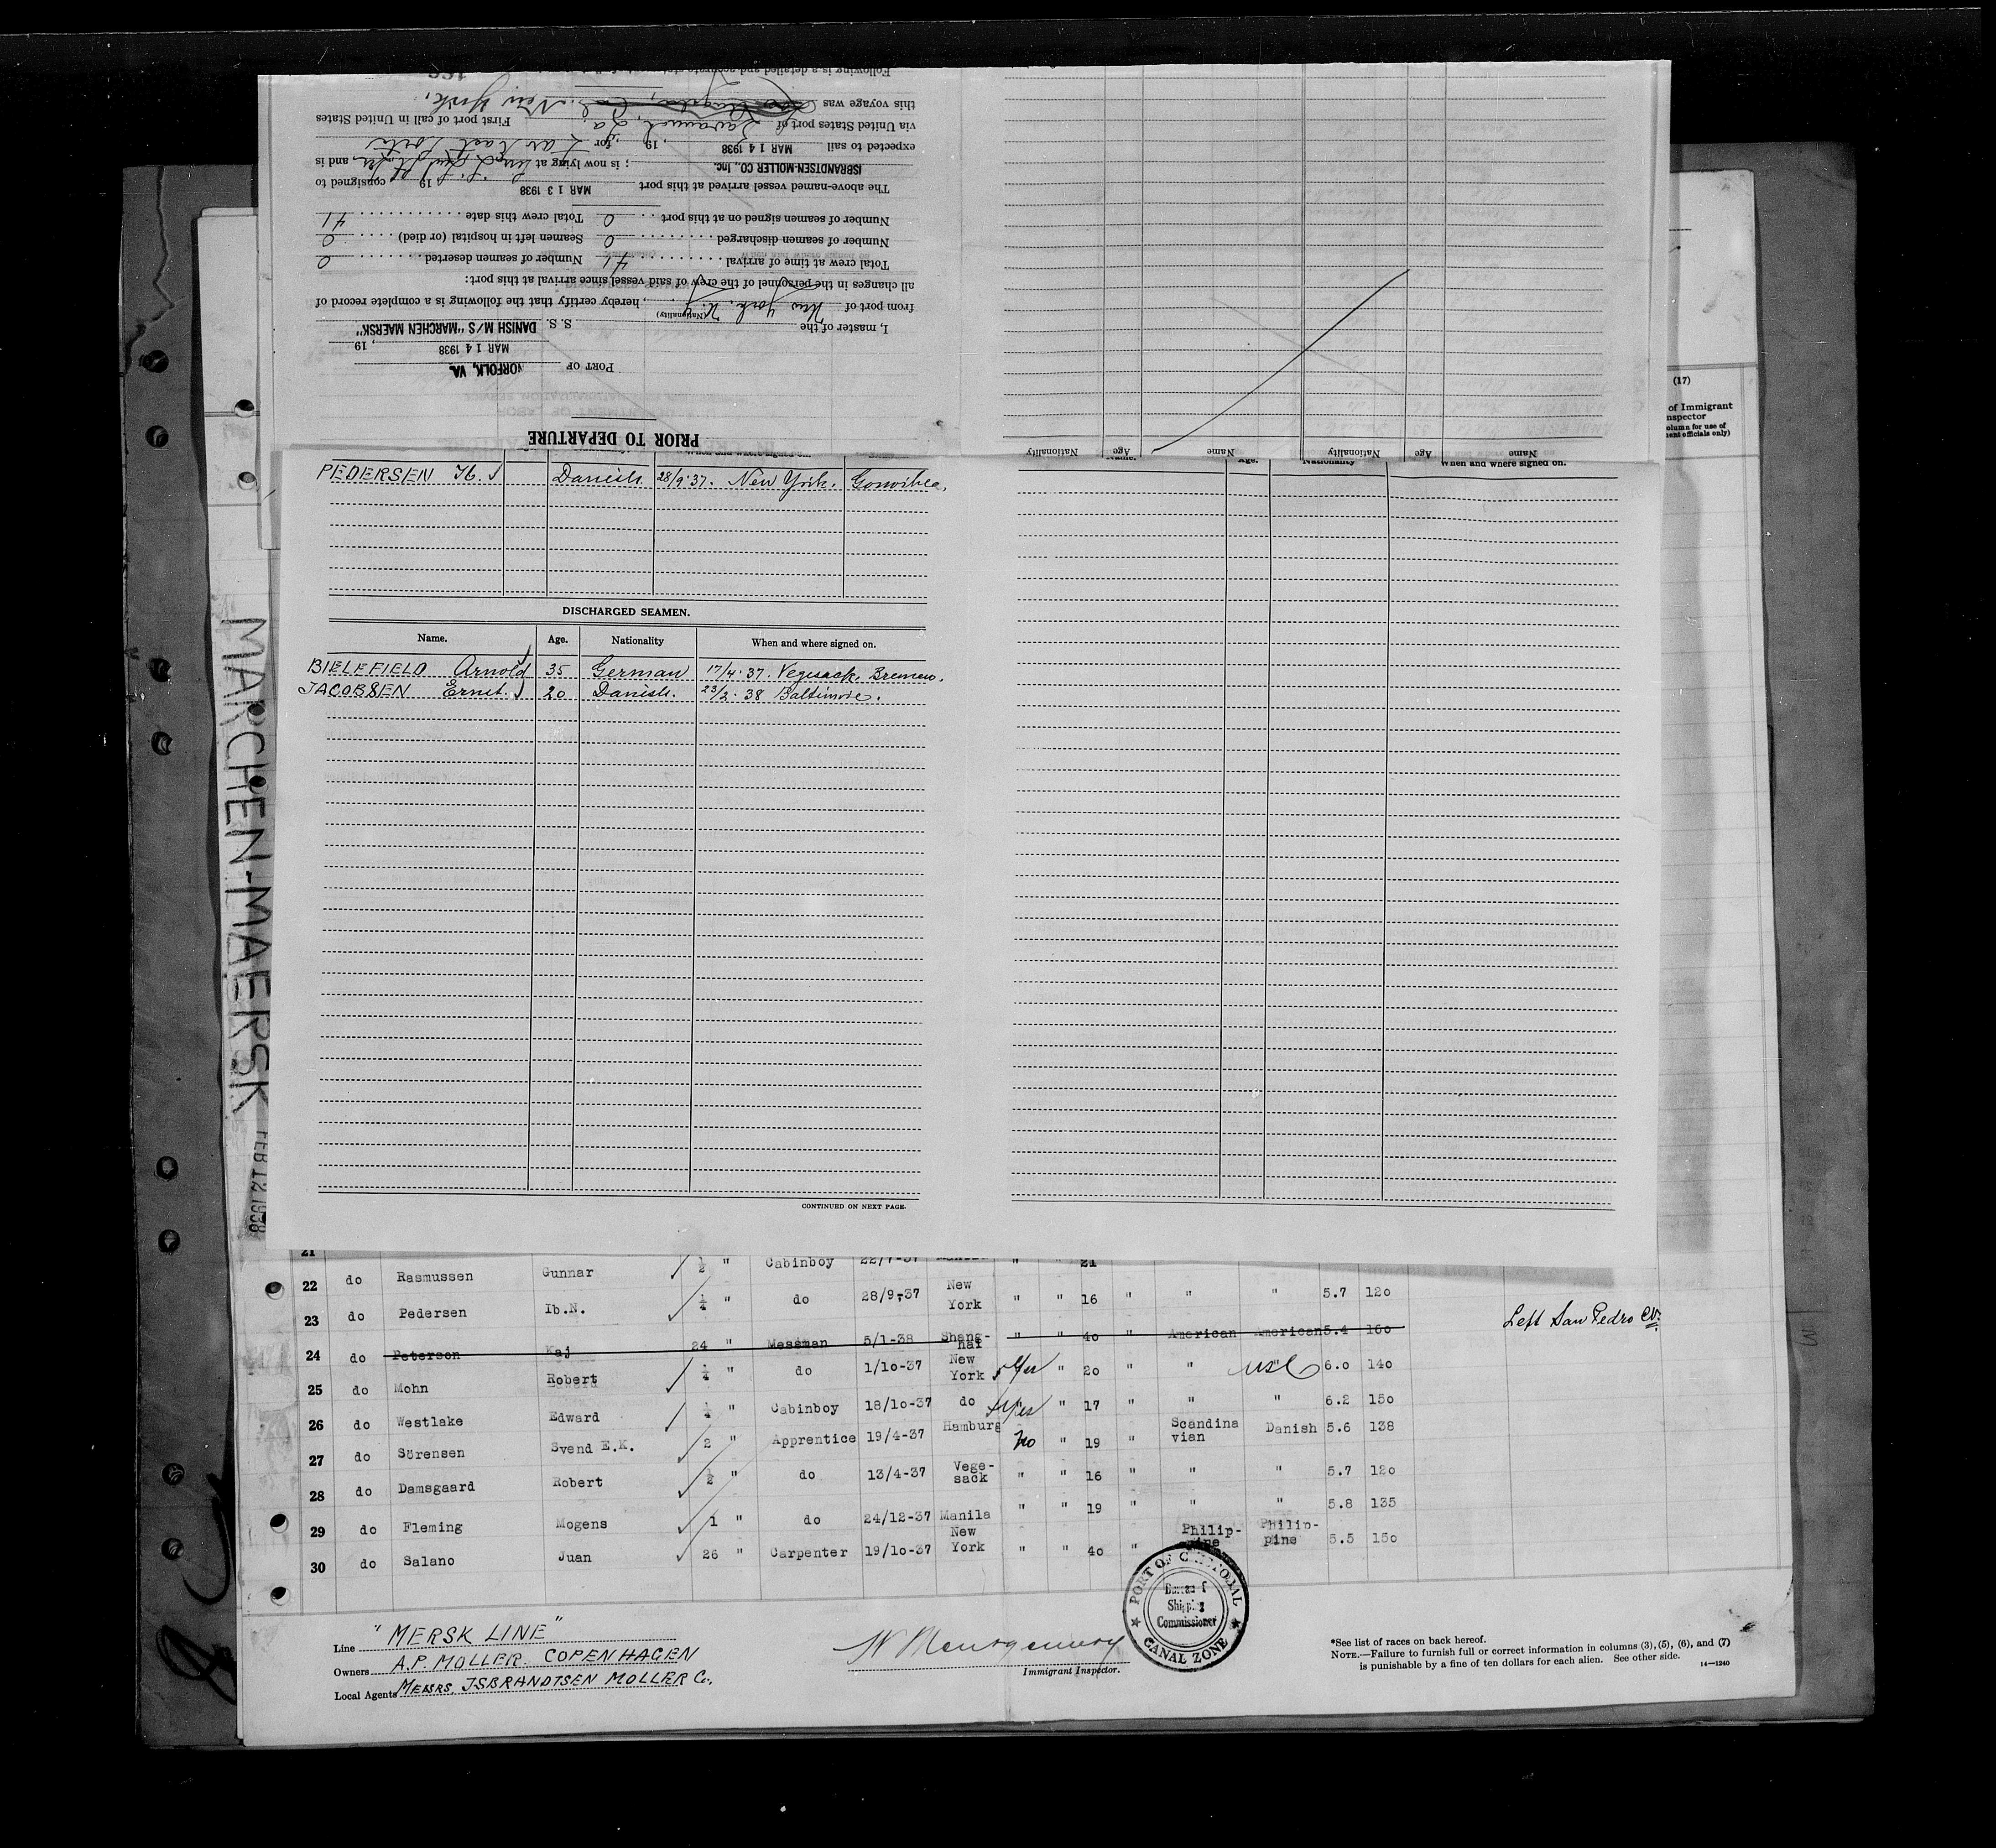 PRIOR TO DEPARTURE
PORT OF NORFOLK, VA.
MAR 14 1938, 19
I, master of the S. S. DANISH M/S "MARCHEN MAERSK"
(Nationality)
from port of New York. N.Y., hereby certify that the following is a complete record of
all changes in the personnel of the crew of said vessel since arrival at this port:
Total crew at time of arrival 41 Number of seamen deserted 0
Number of seamen discharged 0 Seamen left in hospital (or died) 0
Number of seamen signed on at this port 0 Total crew this date 41
The above-named vessel arrived at this port MAR 13 1938 19 consigned to
ISBRANDTSEN-MOLLER CO., Inc. ; is now lying at and is
expected to sail MAR 14 1938, 19 , for Far East Ports
via United States port of Savannah, Ga. First port of call in United States
this voyage was New York.
Following is a detailed and accurate
Name Age Nationality Name Age Nationality
PEDERSEN Ib. Danish 28/9·37. New York.
Name. Age. Nationality When and where signed on.
DISCHARGED SEAMEN.
Name. Age. Nationality When and where signed on.
BIELEFIELD Arnold 35 German 17/4·37. Vegesack, Bremen.
JACOBSEN Ernst. 20 Danish. 23/2·38 Baltimore.
CONTINUED ON NEXT PAGE.
MARCHEN-MAERSK
FEB 12 1938
(17)
of Immigrant
nspector
olumn for use of
ent officials only)
21
22 do Rasmussen Gunnar ½ " Cabinboy 22/7-37 " " 21
23 do Pedersen Ib.N. ¼ " do 28/9-37 New York " " 16 " " " 5.7 120
24 do Peterson Kaj 24 " Messman 5/1-38 Shang-hai " " 40 " American American 5.4 160 Left San Pedro
25 do Mohn Robert ¼ " do 1/10-37 New York Yes " 20 " " USC 6.0 140
26 do Westlake Edward ¼ " Cabinboy 18/10-37 do Yes " 17 " " " 6.2 150
27 do Sörensen Svend E.K. 2 " Apprentice 19/4-37 Hamburg No " 19 " Scandina vian Danish 5.6 138
28 do Damsgaard Robert ½ " do 13/4-37 Vege-sack " " 16 " " " 5.7 120
29 do Fleming Mogens 1 " do 24/12-37 Manila " " 19 " " " 5.8 135
30 do Salano Juan 26 " Carpenter 19/10-37 New York " " 40 " Philip-pine Philip-pine 5.5 150
Line "MERSK LINE"
Owners A.P. MOLLER. COPENHAGEN
Local Agents MESSRS. ISBRANDTSEN MOLLER Co.,
W Montgomery
Immigrant Inspector.
PORT OF CRISTOBAL
Bureau of
Shipping
Commissioner
CANAL ZONE
*See list of races on back hereof.
NOTE.—Failure to furnish full or correct information in columns (3), (5), (6), and (7)
is punishable by a fine of ten dollars for each alien. See other side. 14—1240